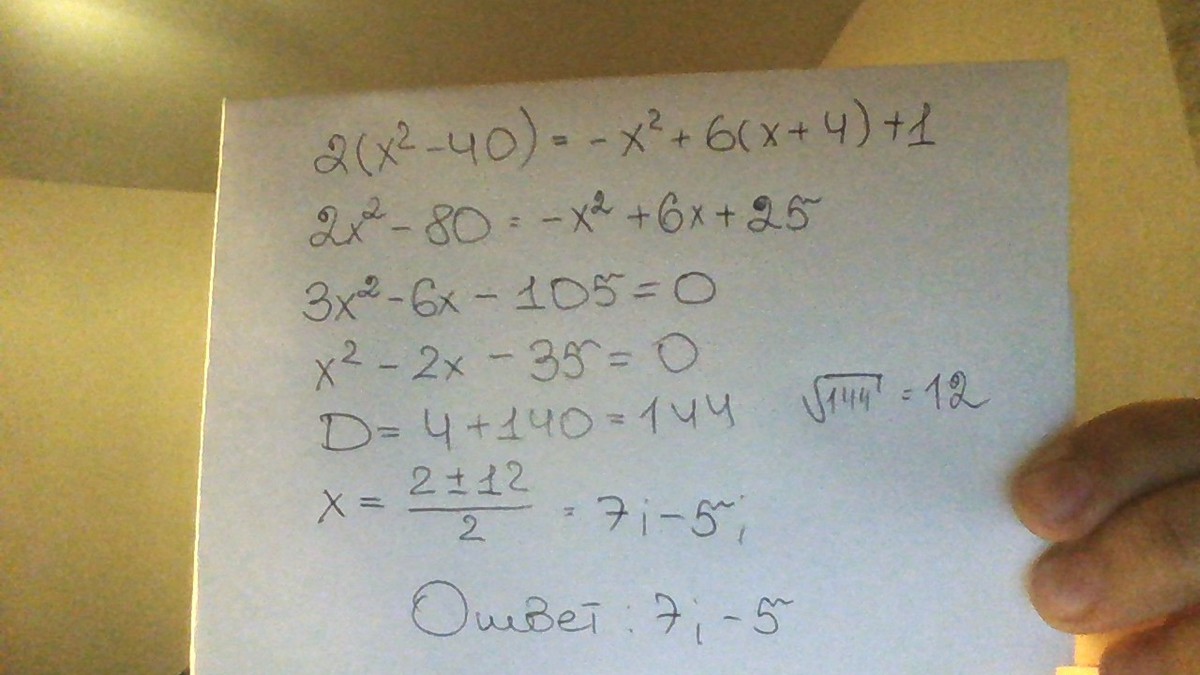 2(x²-40) = -x² + 6(x+4)+1
2x² - 80 = -x² + 6x + 25
3x² - 6x - 105 = 0
x² - 2x - 35 = 0
D = 4 + 140 = 144 √144 = 12
x = (2 ± 12)/2 = 7; -5;
Ответ: 7; -5